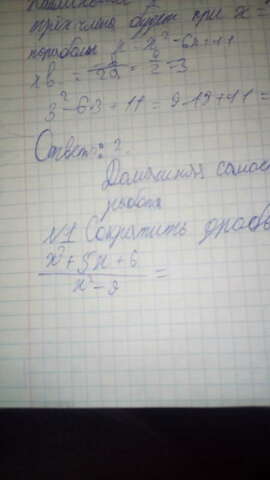 трёхчлена будет при x =
параболы y = x² - 6x + 11
xв. = -b/2a = 6/2 = 3
3² - 6·3 + 11 = 9 - 18 + 11 =
Ответ: 2.
Домашняя самос
работа
N1 Сократить дробь
x² + 5x + 6
x² - 9
=